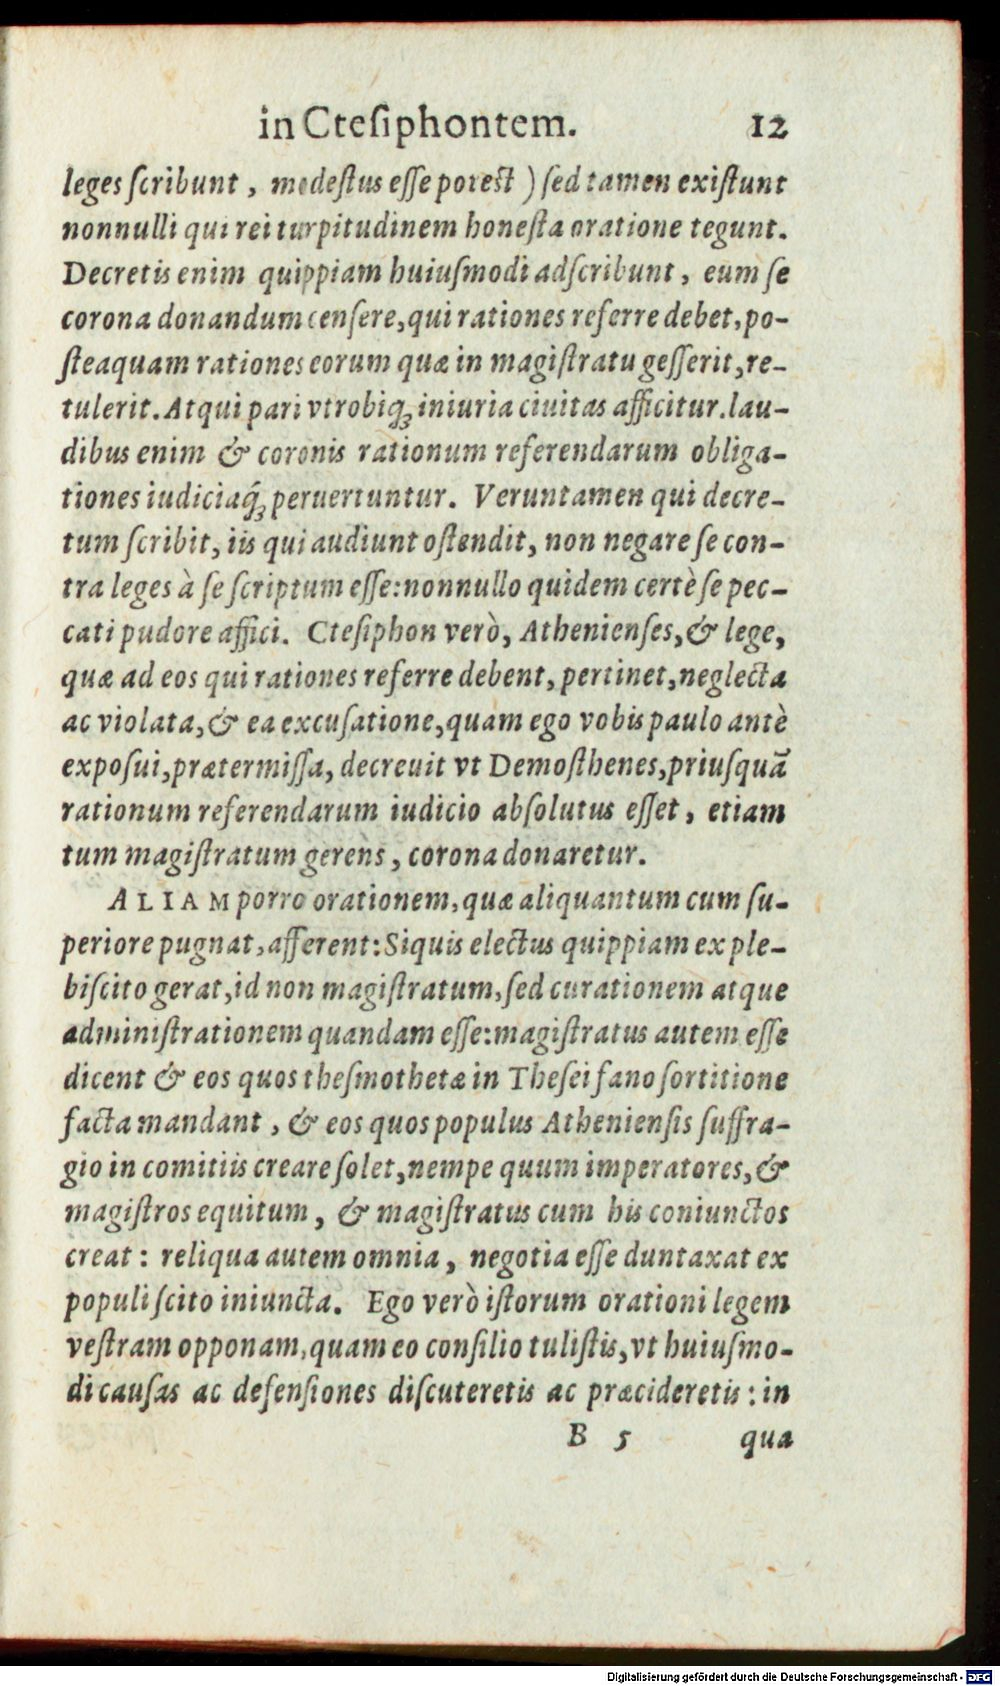 in Cteſiphontem. 12
leges ſcribunt, modeſtus eſſe poteſt) ſed tamen exiſtunt
nonnulli qui rei turpitudinem honeſta oratione tegunt.
Decretis enim quippiam huiuſmodi adſcribunt, eum ſe
corona donandum cenſere, qui rationes referre debet, po-
ſteaquam rationes eorum quæ in magiſtratu geſſerit, re-
tulerit. Atqui pari vtrobiq; iniuria ciuitas afficitur. lau-
dibus enim & coronis rationum referendarum obliga-
tiones iudiciaq́; peruertuntur. Veruntamen qui decre-
tum ſcribit, iis qui audiunt oſtendit, non negare ſe con-
tra leges à ſe ſcriptum eſſe: nonnullo quidem certè ſe pec-
cati pudore affici. Cteſiphon verò, Athenienſes, & lege,
quæ ad eos qui rationes referre debent, pertinet, neglecta
ac violata, & ea excuſatione, quam ego vobis paulo antè
expoſui, prætermiſſa, decreuit vt Demoſthenes, priuſquā
rationum referendarum iudicio abſolutus eſſet, etiam
tum magiſtratum gerens, corona donaretur.
ALIAM porro orationem, quæ aliquantum cum ſu-
periore pugnat, afferent: Siquis electus quippiam ex ple-
biſcito gerat, id non magiſtratum, ſed curationem atque
adminiſtrationem quandam eſſe: magiſtratus autem eſſe
dicent & eos quos theſmothetæ in Theſei fano ſortitione
facta mandant, & eos quos populus Athenienſis ſuffra-
gio in comitiis creare ſolet, nempe quum imperatores, &
magiſtros equitum, & magiſtratus cum his coniunctos
creat: reliqua autem omnia, negotia eſſe duntaxat ex
populi ſcito iniuncta. Ego verò iſtorum orationi legem
veſtram opponam, quam eo conſilio tuliſtis, vt huiuſmo-
di cauſas ac defenſiones diſcuteretis ac præcideretis: in
B 5 qua
Digitalisierung gefördert durch die Deutsche Forschungsgemeinschaft - DFG